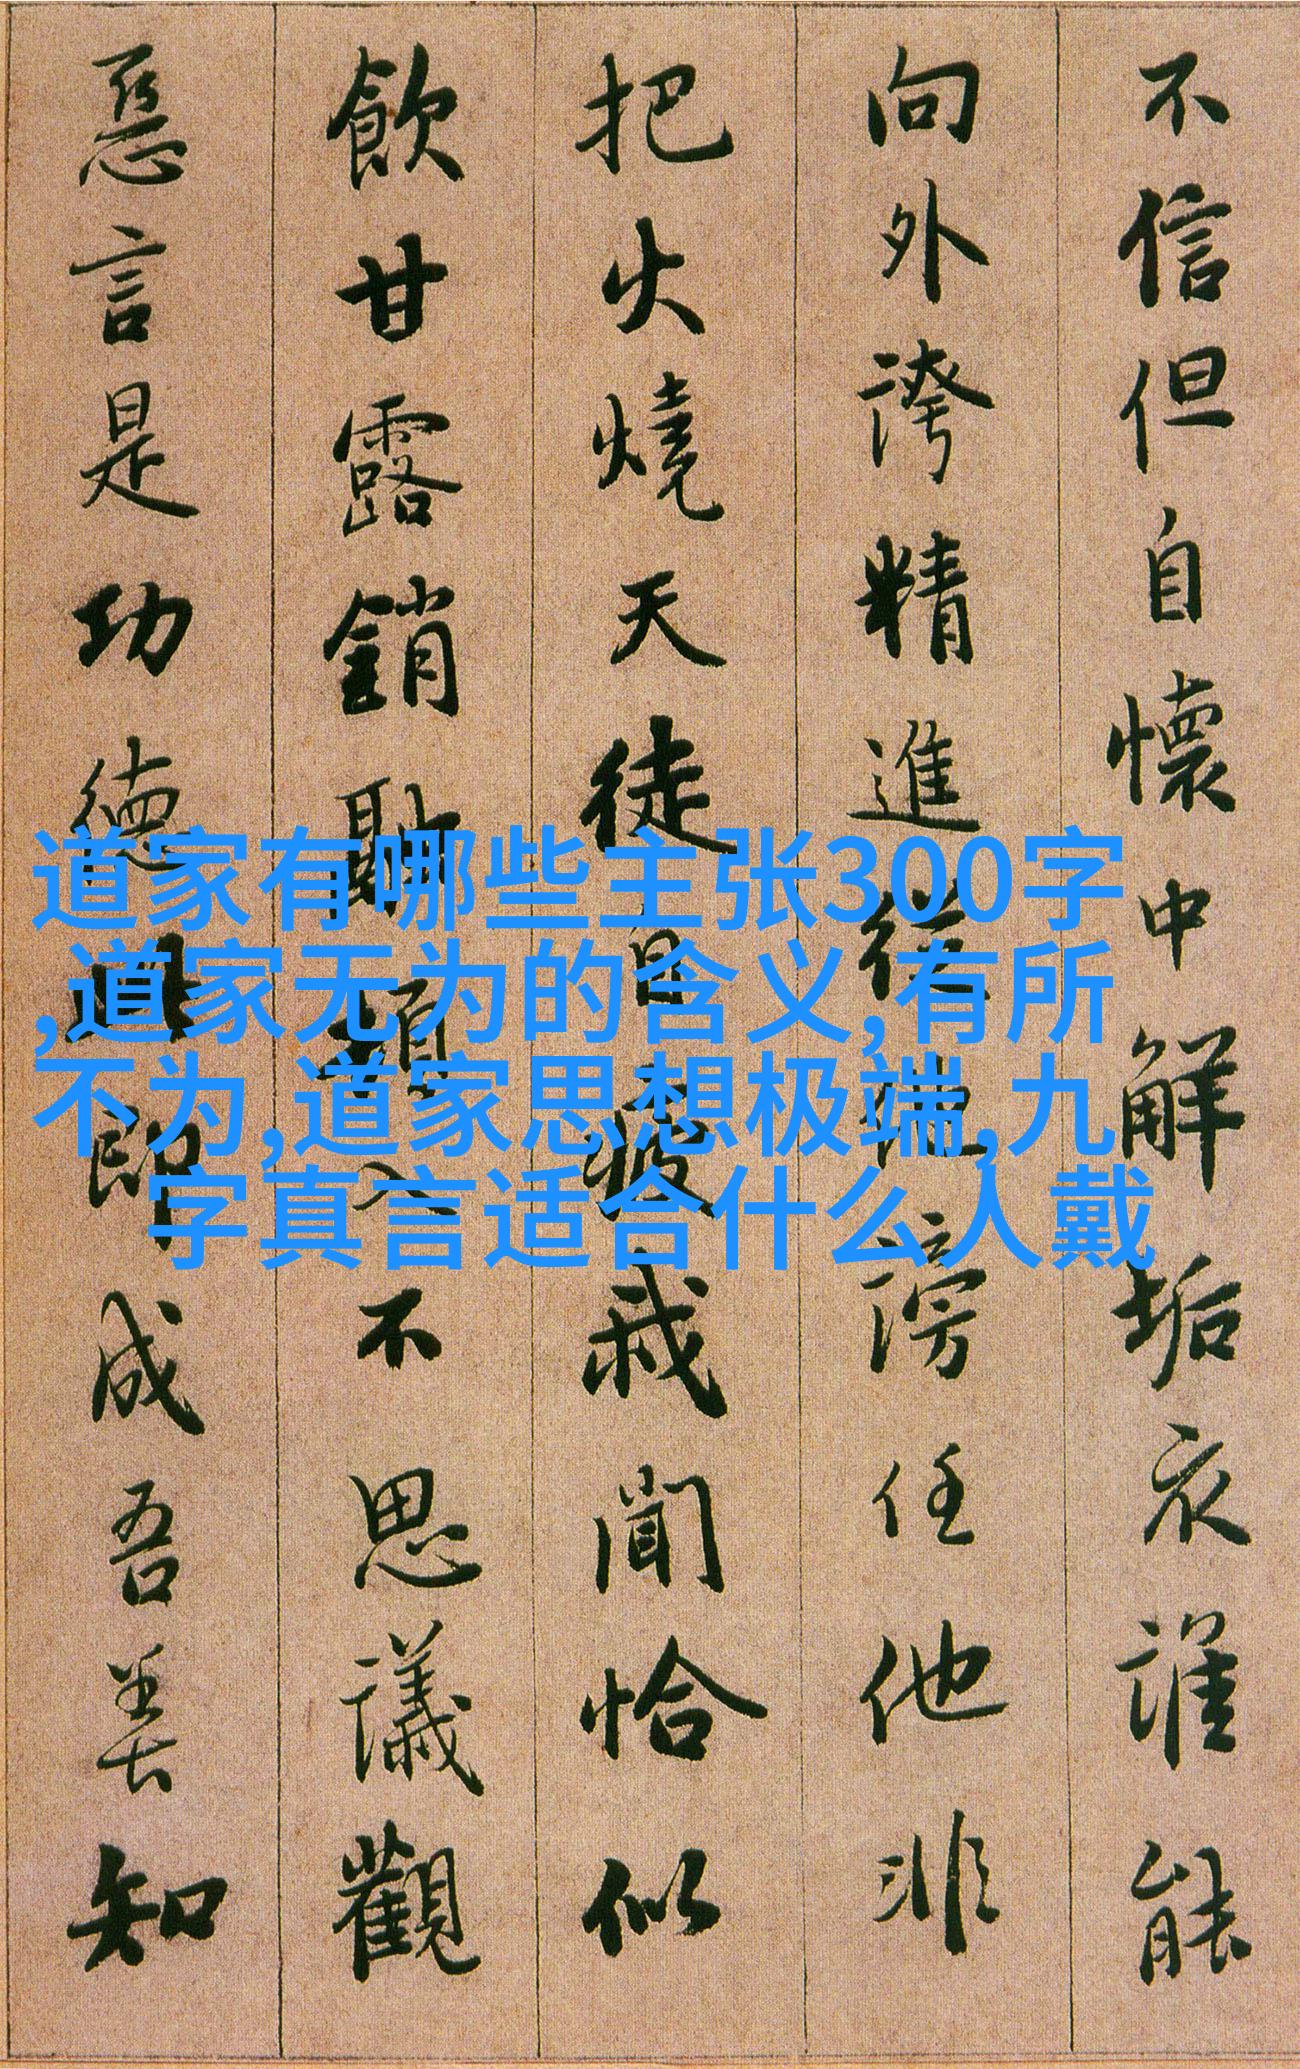 不信但自懷中解垢衣誰能
向外誇精進從他謗任他非
把火燒天徒自疲我聞恰似
飲甘露銷融頓入不思議觀
惡言是功德此即成吾善知
道家有哪些主张300字
,道家无为的含义,有所
不为,道家思想极端,九
字真言适合什么人戴